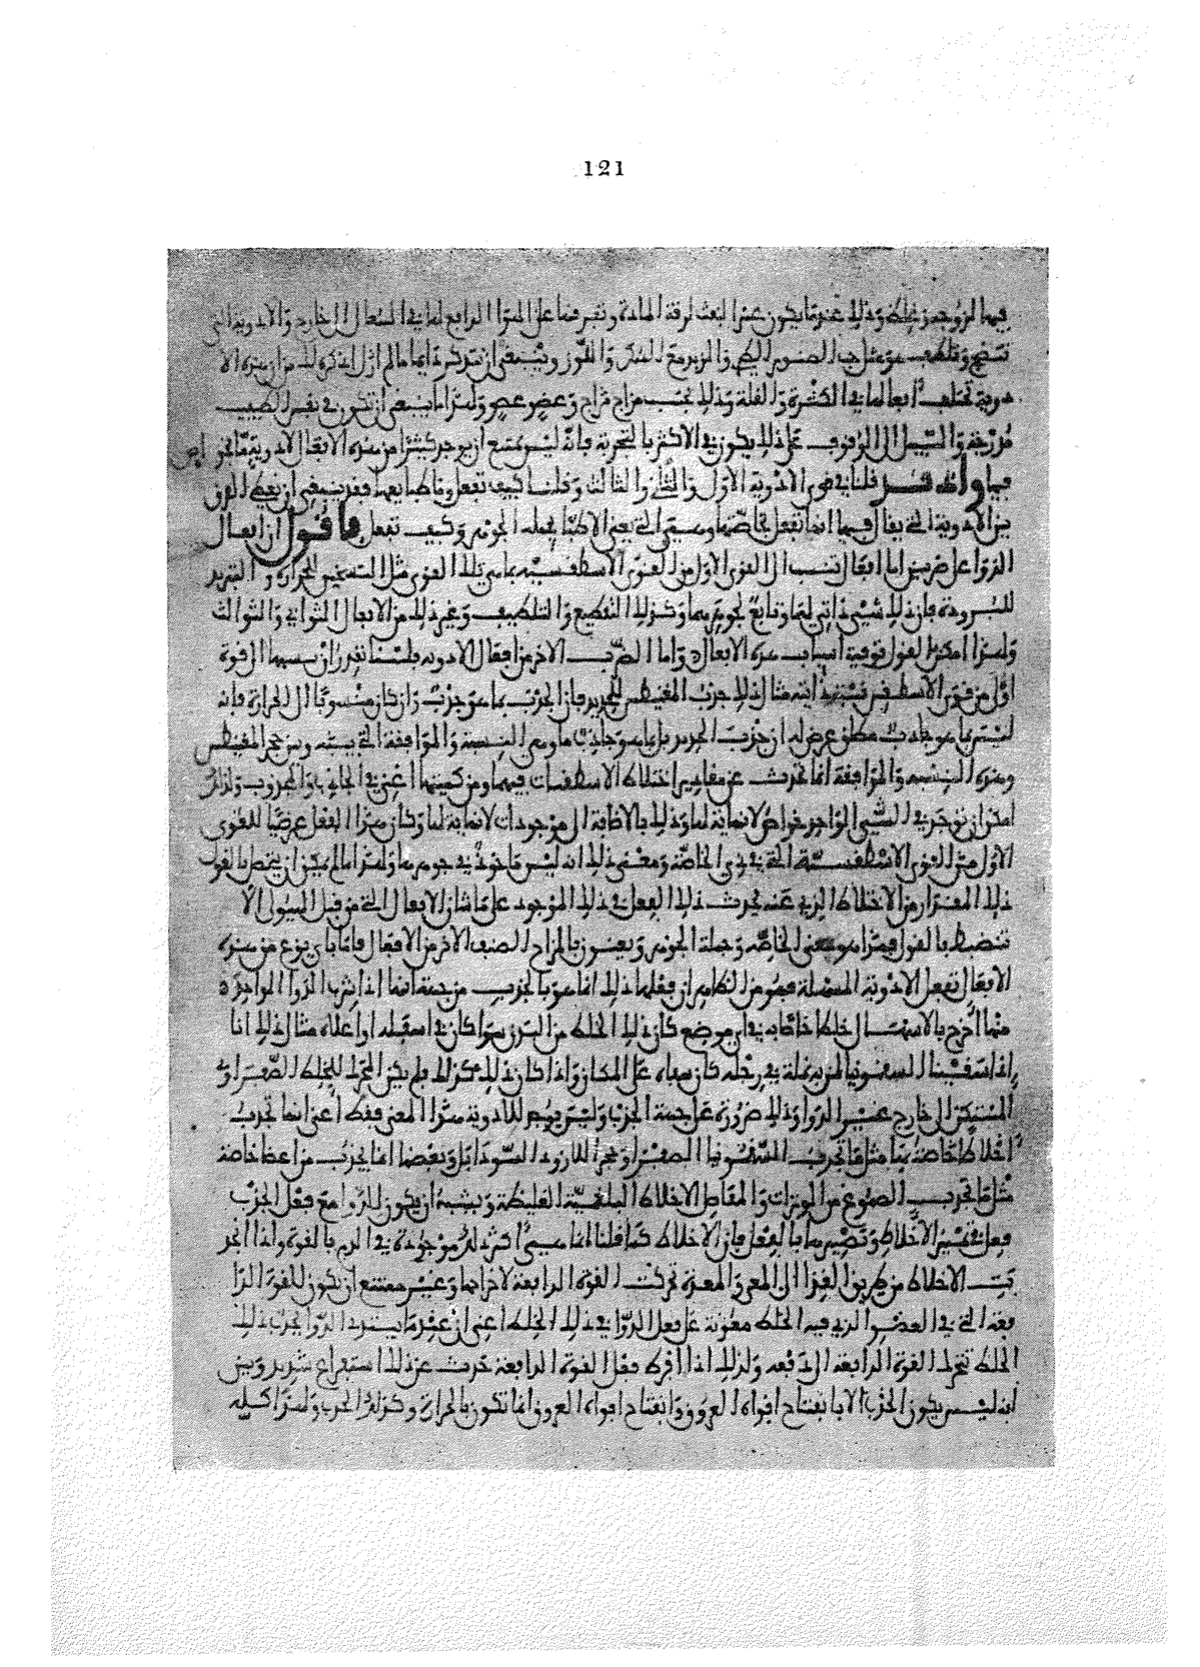 121
فيها لزوجة وغلظ وذلك عندما يكون عسر النفث لرقة المادة وتعرفها على الموا الرابع لها في السعال إلى خارج والأدوية التي
تنضج وتلطف هو مثل حب الصنوبر الكبير والزبد مع السكر واللوز وينبغي أن تتذكر دائما ما لم أزل أذكره لك من أن هذه الأ
دوية تختلف أفعالها في الكثرة والقلة وذلك بحسب مزاج مزاج وعضو عضو ولهذا ما ينبغي أن تكون في نفس الطبيب
مزوجة والسبيل إلى الوقوف على ذلك يكون في الأكثر بالتجربة فإنه ليس يمتنع أن يوجد كثيرا من هذه الأفعال لأدوية
فيها والله قد قلنا في قوى الأدوية الأول والثواني والثالث وقلنا كيف تفعل وما طبائعها فقد ينبغي أن نعطي الفرق
بين الأدوية التي يقال فيها إنها تفعل بخاصتها وهي التي يعني الأطباء بجملة الجوهر وكيف تفعل فأقول إن أفعال
الدواء على ضربين إما أفعال تنسب إلى القوى الأول من القوى الأسطقسية بما هي تلك القوى مثل التسخين للحرارة والتبريد
للبرودة فإن ذلك شيء ذاتي لها وتابع لجوهرهما وكذلك التقطيع والتلطيف وغير ذلك من الأفعال الثواني والثوالث
ولهذا أمكن القول توفية أسباب هذه الأفعال وأما الضرب الآخر من أفعال الأدوية فلسنا نقدر أن ننسبها إلى قوة
أول من قوى الأسطقس نسبة ذاتية مثال ذلك جذب المغنطيس للحديد فإن الجذب بما هو جذب وإن كان منسوبا إلى الحرارة فإنه
ليس بما هو جاذب مطلق عرض له أن جذب الحديد بل بما هو جاذب ما وهي النسبة والموافقة التي بينه وبين حجر المغنطيس
وهذه النسبة والموافقة إنما تحدث عن مقادير اختلاط الأسطقسات فيهما ومن كميتها أعني في الجاذب والمجذوب ولذلك
أمكن أن توجد في الشيء الواحد خواص لا نهاية لها وذلك بالإضافة إلى موجودات لا نهاية لها وكان هذا الفعل عرضيا للقوى
الأول من القوى الأسطقسية التي في ذي الخاصة ومعنى ذلك أنه ليس مأخوذ في جوهرها ولهذا ما لم يمكن أن يحيط بالقول
ذلك المقدار من الاختلاط الذي عنه يحدث ذلك الفعل في ذلك الموجود على ما شأن الأفعال التي من قبل الهيولى ألا
تنضبط بالقول فهذا هو معنى الخاصة وجملة الجوهر ويعنون بالمزاج الصنف الآخر من الأفعال فأما بأي نوع من هذه
الأفعال تفعل الأدوية المسهلة فهو من الظاهر أن فعلها ذلك إنما هو بالجذب من جهة أنها إذا شرب الدواء الواحد
منها أخرج بالإسهال خلطا خاصا به في أي موضع كان ذلك الخلط من البدن سواء كان في أسفله أو أعلاه مثال ذلك أنا
إذا سقينا السقمونيا لمن به نملة في رجله كان هذا على المكان وإذا كان ذلك كذلك فلم يكن المحرك للخلط الصفراوي
المستكن إلى خارج غير الدواء وذلك ضرورة على جهة الجذب وليس يوجد للأدوية هذا المعنى فقط أعني أنها تجذب
أخلاطا خاصة بها مثل ما تجذب السقمونيا الصفراء وحجر اللازورد السوداء بل وبعضها إنما يجذب من أعضاء خاصة
مثل ما تجذب الصموغ من الوترات والمفاصل الأخلاط البلغمية الغليظة ويشبه أن يكون للدواء مع فعل الجذب
فعل في تمييز الأخلاط وتصييرها بالفعل فإن الأخلاط كما قلنا إنما هي أكثر ذلك موجودة في الدم بالقوة وإذا انجذ
بت الأخلاط من طريق الغذاء إلى المعى والمعدة تحركت القوة الدافعة لإخراجها وغير ممتنع أن يكون للقوة الدا
فعة التي في العضو الذي فيه الخلط معونة على فعل الدواء في ذلك الخلط أعني أن عندما يبتدئ الدواء يجذب ذلك
الخلط تتحرك القوة الدافعة إلى دفعه ولذلك إذا أفرط فعل القوة الدافعة حدث عن ذلك استفراغ شديد وبين
أنه ليس يكون الجذب إلا بانفتاح أفواه العروق وانفتاح أفواه العروق إنما تكون بالحرارة وكذلك الجذب ولهذا كله